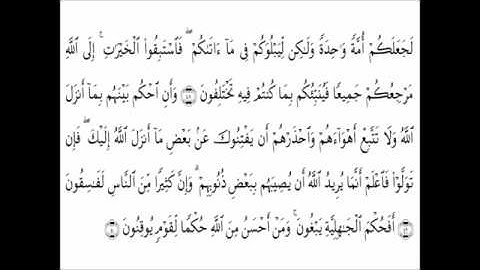 لَجَعَلَكُمْ أُمَّةً وَٰحِدَةً وَلَٰكِن لِّيَبْلُوَكُمْ فِى مَآ ءَاتَىٰكُمْ ۖ فَٱسْتَبِقُوا۟ ٱلْخَيْرَٰتِ ۚ إِلَى ٱللَّهِ
مَرْجِعُكُمْ جَمِيعًا فَيُنَبِّئُكُم بِمَا كُنتُمْ فِيهِ تَخْتَلِفُونَ ٤٨ وَأَنِ ٱحْكُم بَيْنَهُم بِمَآ أَنزَلَ
ٱللَّهُ وَلَا تَتَّبِعْ أَهْوَآءَهُمْ وَٱحْذَرْهُمْ أَن يَفْتِنُوكَ عَنۢ بَعْضِ مَآ أَنزَلَ ٱللَّهُ إِلَيْكَ ۖ فَإِن
تَوَلَّوْا۟ فَٱعْلَمْ أَنَّمَا يُرِيدُ ٱللَّهُ أَن يُصِيبَهُم بِبَعْضِ ذُنُوبِهِمْ ۗ وَإِنَّ كَثِيرًا مِّنَ ٱلنَّاسِ لَفَٰسِقُونَ
٤٩ أَفَحُكْمَ ٱلْجَٰهِلِيَّةِ يَبْغُونَ ۚ وَمَنْ أَحْسَنُ مِنَ ٱللَّهِ حُكْمًا لِّقَوْمٍ يُوقِنُونَ ٥٠